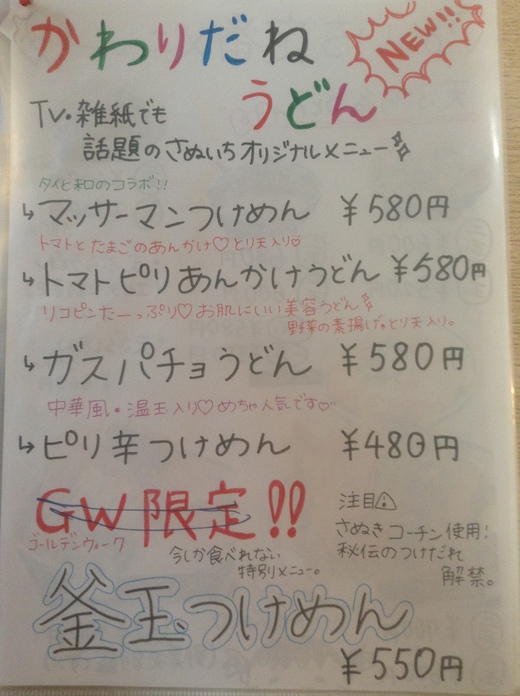 かわりだね
うどん
NEW!!
TV・雑紙でも
話題のさぬいちオリジナルメニュー
タイと和のコラボ!!
↳マッサーマンつけめん ¥580円
トマトとたまごのあんかけ♡とり天入り♡
↳トマトピリあんかけうどん ¥580円
リコピンたーっぷり♡お肌にいい美容うどん
野菜の素揚げ。とり天入り。
↳ガスパチョうどん ¥580円
中華風・温玉入り♡めちゃ人気です♡
↳ピリ辛つけめん ¥480円
GW限定!!
ゴールデンウィーク
今しか食べれない
特別メニュー。
注目⚠
さぬきコーチン使用!
秘伝のつけだれ
解禁。
釜玉つけめん
¥550円